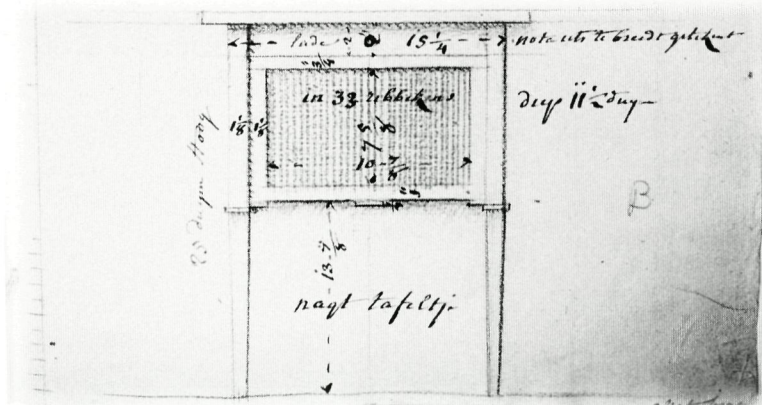 lade 2 15 1/4 nota iets te breedt getekent
3/4
in 33 ribbekens
diep 11 1/2 duym
1 1/8 1 1/8
5/8
10 7/8
25 duym Hoog
B
13 7/8
nagt tafeltje